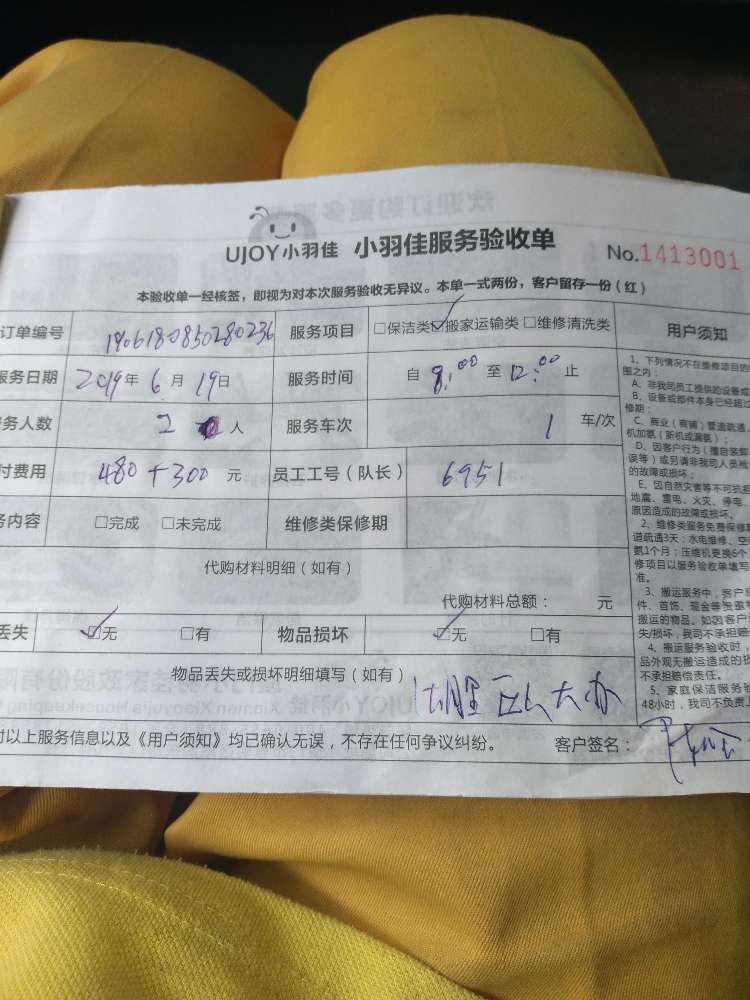 UJOY小羽佳 小羽佳服务验收单 No.1413001
本验收单一经核签，即视为对本次服务验收无异议。本单一式两份，客户留存一份（红）
订单编号 1906180850280236 服务项目 □保洁类 ☑搬家运输类 □维修清洗类 用户须知
服务日期 2019年 6 月 19日 服务时间 自 8:00 至 12:00 止
务人数 2 人 服务车次 1 车/次
付费用 480+300 元 员工工号（队长） 6951
务内容 □完成 □未完成 维修类保修期
代购材料明细（如有）
代购材料总额： 元
丢失 ☑无 □有 物品损坏 ☑无 □有
物品丢失或损坏明细填写（如有）
对以上服务信息以及《用户须知》均已确认无误，不存在任何争议纠纷。 客户签名：
1、下列情况不在维修项目的
围之内：
A、非我司员工提供的设备或
B、设备或部件本身已经超过
修期；
C、商业（商铺）管道疏通、
机加氨（新机或漏氨）；
D、因客户行为（擅自装卸
误等）或另请非我司人员检
的故障或损坏；
E、因自然灾害等不可抗拒
地震、雷电、火灾、停电
原因造成的故障或损坏。
2、维修类服务免费保修期
道疏通3天；水电维修、空
氨1个月；压缩机更换6个
修项目以服务验收单填写
准。
3、搬运服务中，客户应
件、首饰、现金等贵重
搬运的物品。如因客户
失/损坏，我司不承担赔
4、搬运服务验收时，
品外观无搬运造成的损
不承担赔偿责任。
5、家庭保洁服务验
48小时，我司不负责